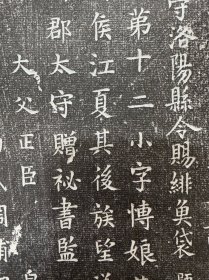 守洛陽縣令賜緋魚袋
弟十二小字博娘
侯江夏其後族望
郡太守贈祕書監
大父正臣